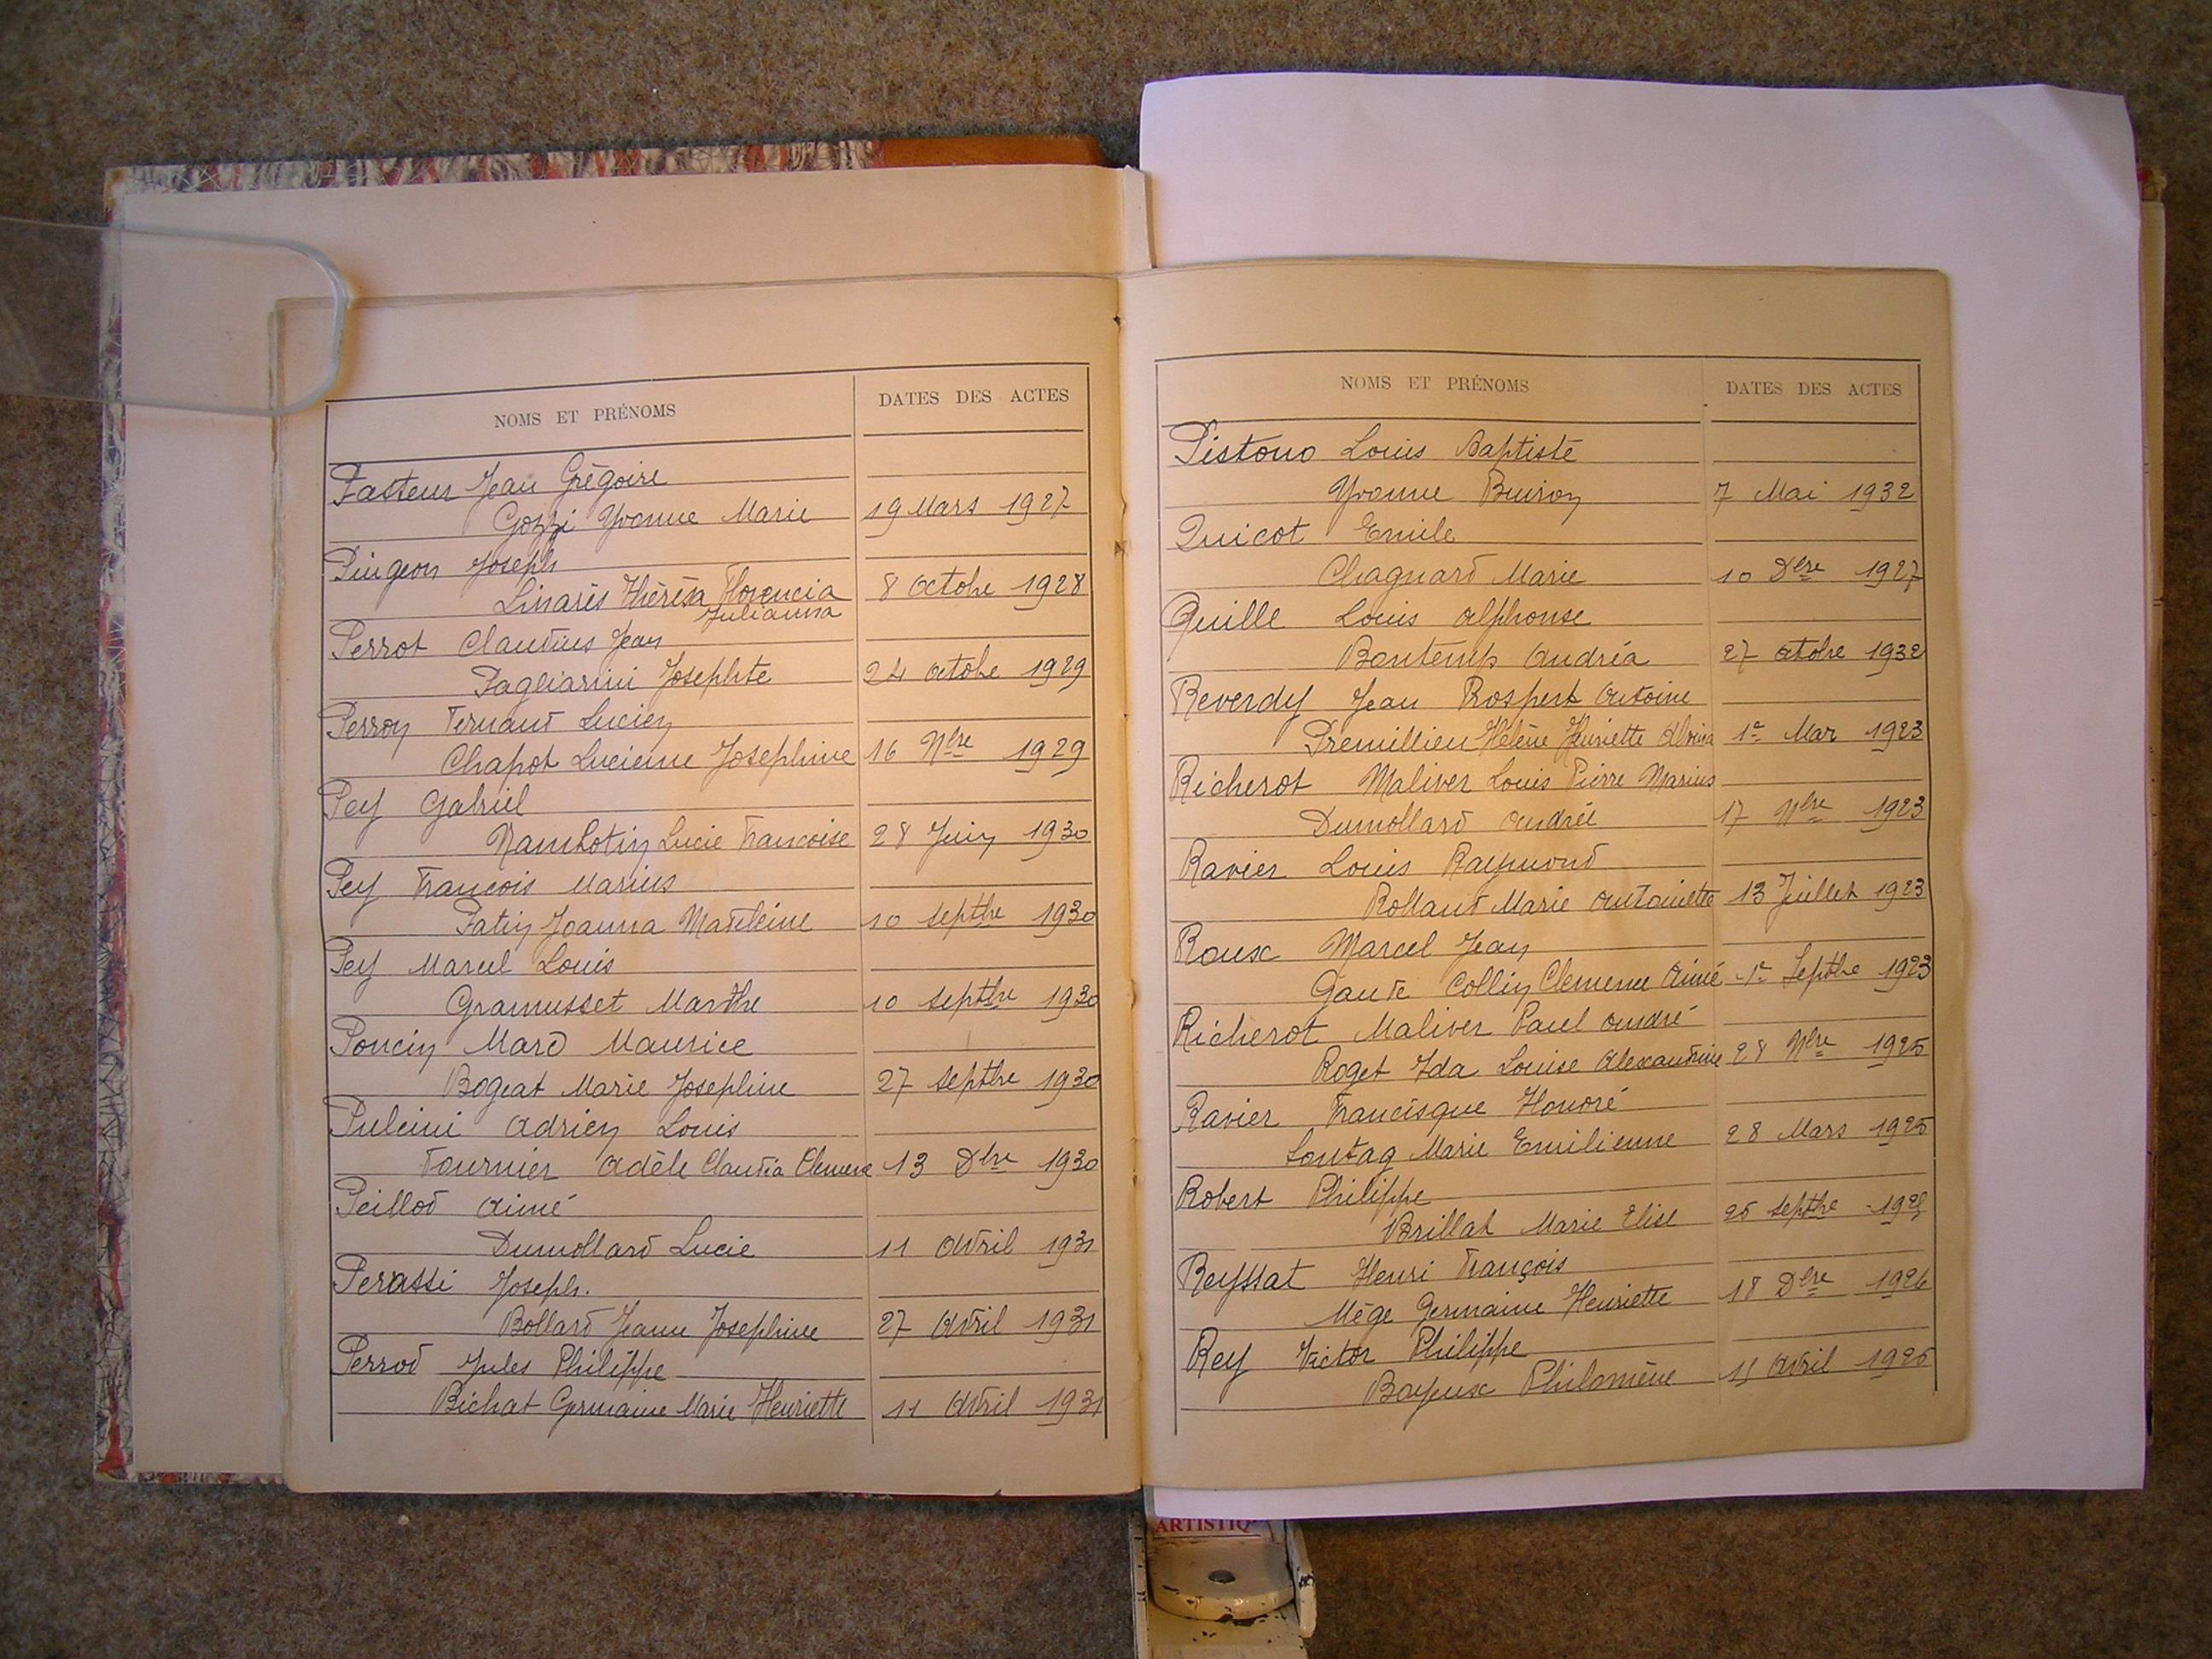 NOMS ET PRÉNOMS DATES DES ACTES
Pasteur Jean Grégoire
Gozzi Yvonne Marie 19 Mars 1927
Pingeon Joseph
Linarès Thérésa Florencia 8 Octobre 1928
Julianna
Perrot Claudius Jean
Pagliarini Josephte 24 octobre 1929
Perron Fernand Lucien
Chapot Lucienne Josephine 16 Nbre 1929
Pey Gabriel
Nambotin Lucie Francoise 28 Juin 1930
Pey Francois Marius
Patin Joanna Madeleine 10 septbre 1930
Pey Marcel Louis
Gramusset Marthe 10 septbre 1930
Poncin Marc Maurice
Bogeat Marie Josephine 27 septbre 1930
Pulcini Adrien Louis
Fournier Adèle Claudia Clemence 13 Dbre 1930
Peillod Aimé
Dumollard Lucie 11 Avril 1931
Perassi Joseph.
Bollard Jeanne Josephine 27 Avril 1931
Perrod Jules Philippe
Bichat Germaine Marie Henriette 11 Avril 1931
NOMS ET PRÉNOMS DATES DES ACTES
Pistono Louis Baptiste
Yvonne Buiron 7 Mai 1932
Quicot Emile
Chagnard Marie 10 Dbre 1927
Quille Louis Alphonse
Bontemps Andréa 27 octobre 1932
Reverdy Jean Prospert Antoine
Premillieu Hélène Henriette 1er Mar 1923
Richerot Maliver Louis Pierre Marius
Dumollard Andrée 17 Nbre 1923
Ravier Louis Raymond
Rolland Marie Antoinette 13 Juillet 1923
Roux Marcel Jean
Gaude Collin Clemence Aimé 1er Septbre 1923
Richerot Maliver Paul André
Roget Ida Louise Alexandrine 28 Nbre 1925
Ravier Francisque Honoré
Sontag Marie Emilienne 28 Mars 1925
Robert Philippe
Brillat Marie Elise 26 septbre
Reyssat Henri François
Mége Germaine Henriette 18 Dbre 1926
Rey Victor Philippe
Bayeux Philomène Avril
ARTISTIQ